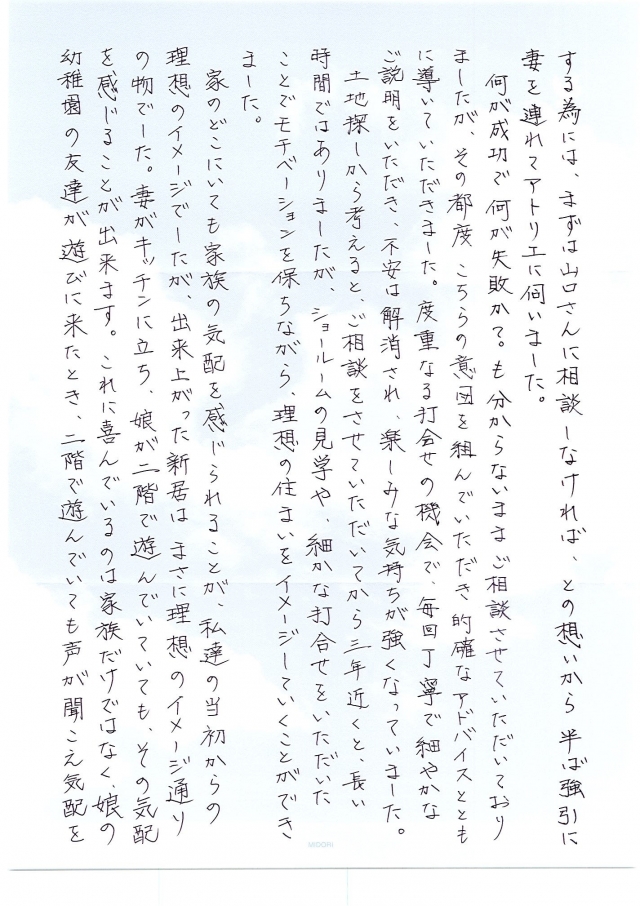 する為には、まずは山口さんに相談しなければ、との想いから半ば強引に
妻を連れてアトリエに伺いました。
何が成功で何が失敗か?も分からないままご相談させていただいており
ましたが、その都度こちらの意図を組んでいただき的確なアドバイスととも
に導いていただきました。度重なる打合せの機会で、毎回丁寧で細やかな
ご説明をいただき、不安は解消され、楽しみな気持ちが強くなっていました。
土地探しから考えると、ご相談をさせていただいてから三年近くと、長い
時間ではありましたが、ショールームの見学や、細かな打合せをいただいた
ことでモチベーションを保ちながら、理想の住まいをイメージしていくことができ
ました。
家のどこにいても家族の気配を感じられることが、私達の当初からの
理想のイメージでしたが、出来上がった新居はまさに理想のイメージ通り
の物でした。妻がキッチンに立ち、娘が二階で遊んでいていても、その気配
を感じることが出来ます。これに喜んでいるのは家族だけではなく、娘の
幼稚園の友達が遊びに来たとき、二階で遊んでいても声が聞こえ気配を
MIDORI